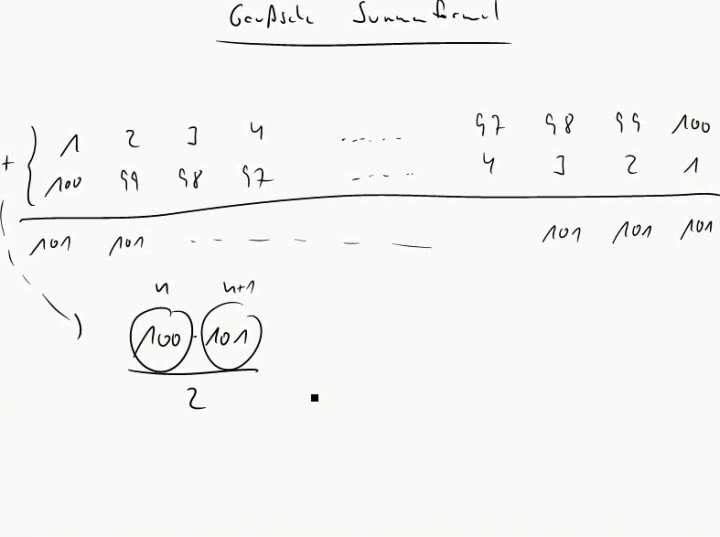 Gaußsche Summenformel
1 2 3 4 ...... 97 98 99 100
+ { 100 99 98 97 ...... 4 3 2 1
101 101 - - - - - - 101 101 101
n n+1
100 · 101
2